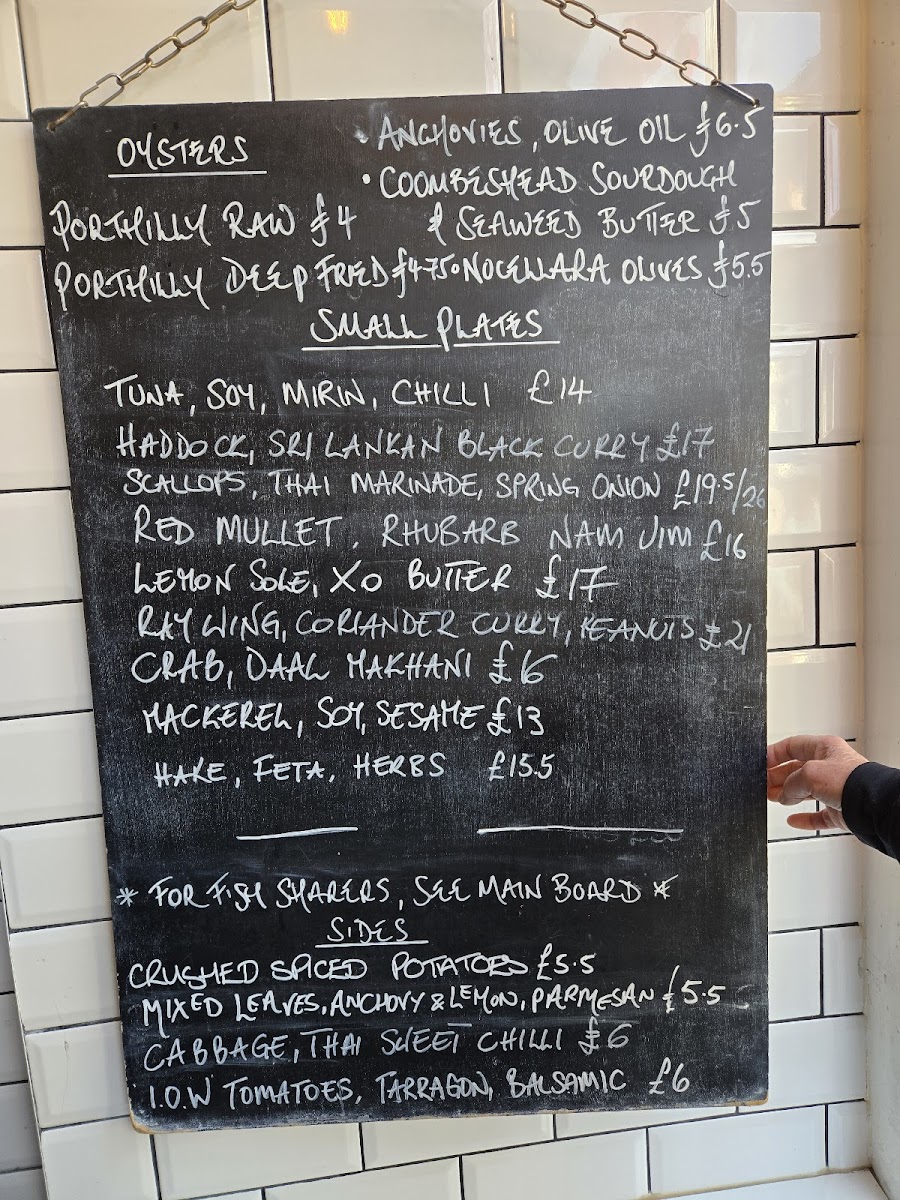 OYSTERS
PORTHILLY RAW £4
PORTHILLY DEEP FRIED £4.75
• ANCHOVIES, OLIVE OIL £6.5
• COOMBESHEAD SOURDOUGH
& SEAWEED BUTTER £5
• NOCELLARA OLIVES £5.5
SMALL PLATES
TUNA, SOY, MIRIN, CHILLI £14
HADDOCK, SRI LANKAN BLACK CURRY £17
SCALLOPS, THAI MARINADE, SPRING ONION £19.5/26
RED MULLET, RHUBARB NAM JIM £16
LEMON SOLE, XO BUTTER £17
RAY WING, CORIANDER CURRY, PEANUTS £21
CRAB, DAAL MAKHANI £16
MACKEREL, SOY, SESAME £13
HAKE, FETA, HERBS £15.5
* FOR FISH SHARERS, SEE MAIN BOARD *
SIDES
CRUSHED SPICED POTATOES £5.5
MIXED LEAVES, ANCHOVY & LEMON, PARMESAN £5.5
CABBAGE, THAI SWEET CHILLI £6
I.O.W TOMATOES, TARRAGON, BALSAMIC £6